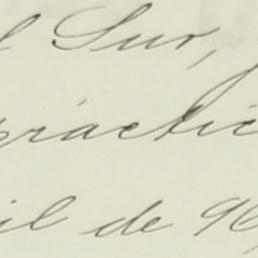 l Sur,
practic
il de 96